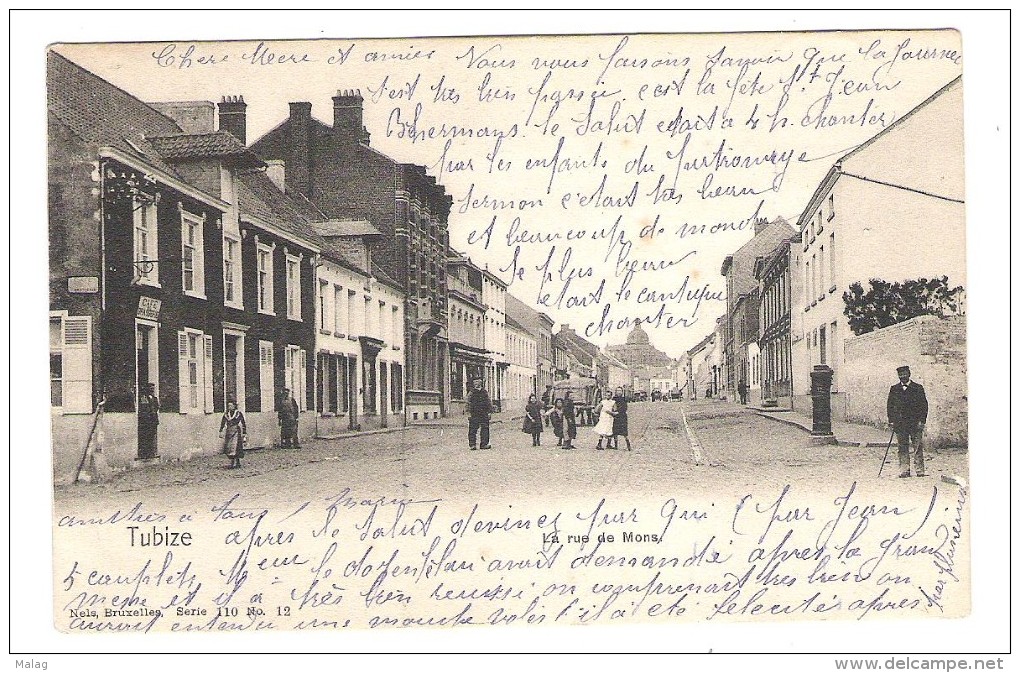 Chere Mere et amies Nous vous faisons savoir que la Journee
s'est très bien passée c'est la fête St Jean
Bhermans. le Salut etait a 4 h. chanter
par les enfants du
Sermon c'etait très beau
et beaucoup de monde
le plus beau
etait le cantique
chanter
CAFÉ
amitiés à tous Marie
Tubize
La rue de Mons.
après le Salut devinez par qui (par Jean)
5 couplets Meur le doyen l'au avait demandé après la Gran
messe et il a très bien reussi on comprenait très bien on
Nels, Bruxelles, Serie 110 No. 12
auroit entendu une mouche voler il a été feleciter après
par
Malag
www.delcampe.net